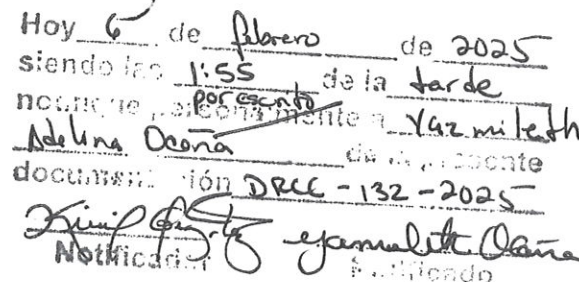 Hoy 6 de febrero de 2025
siendo las 1:55 de la tarde
por escrito
notifique personalmente a Yazmileth
Adelina Ocaña de la presente
documentación DRCC - 132 - 2025
Yamileth Ocaña
Notificador Notificado